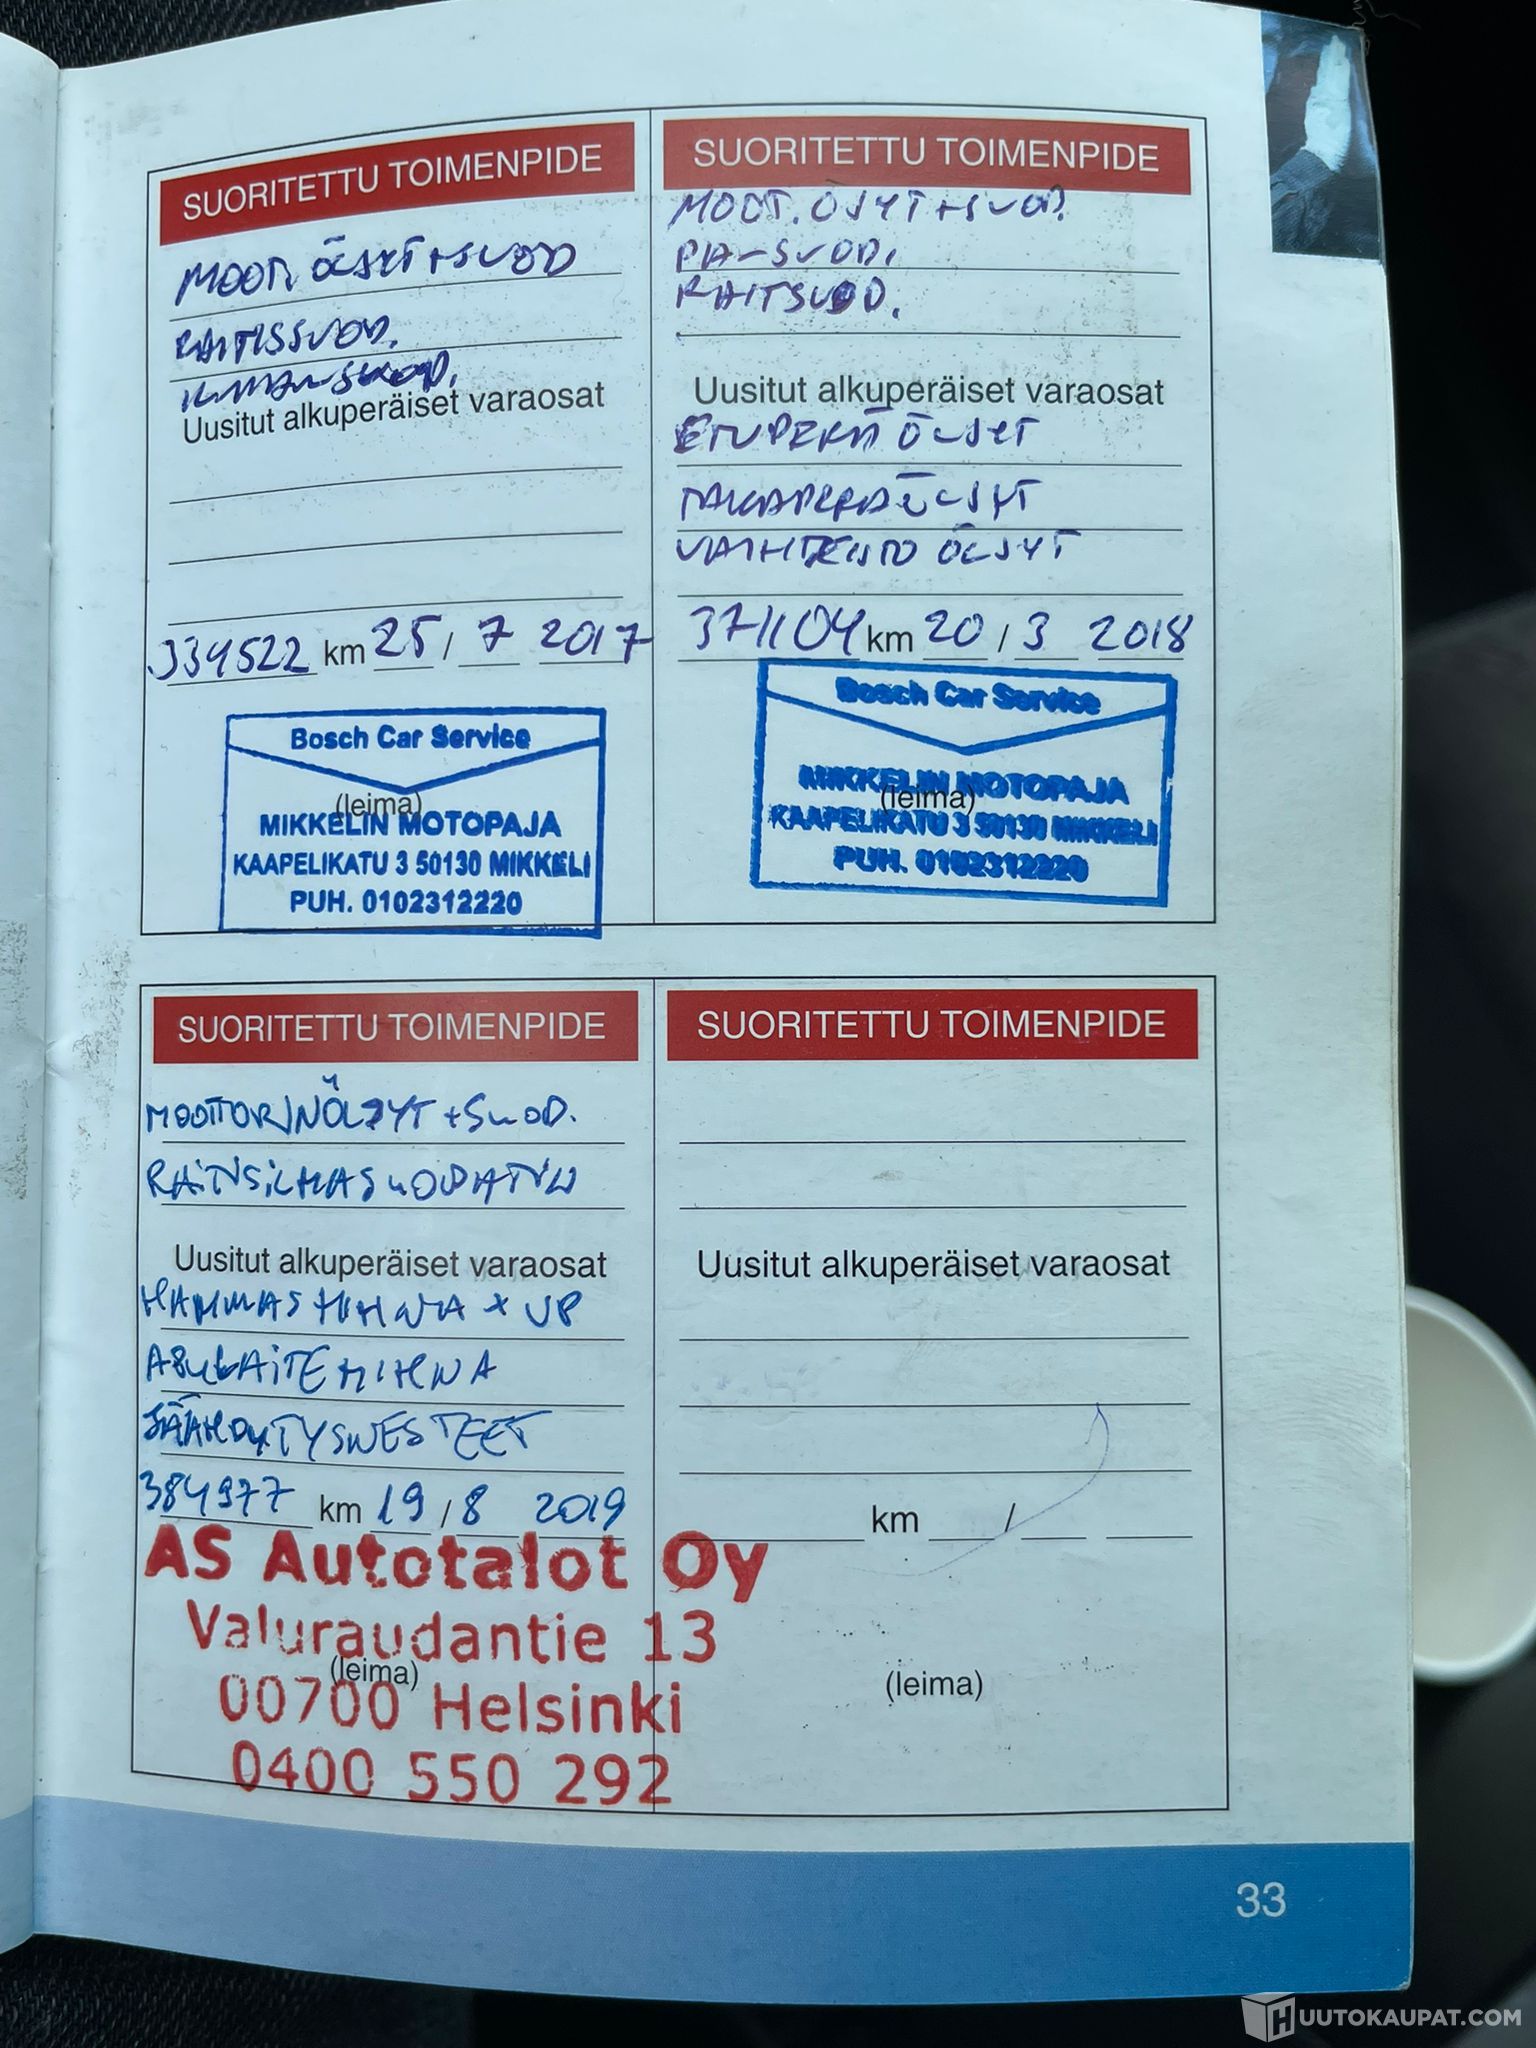 SUORITETTU TOIMENPIDE
MOOT. ÖLJYT+SUOD
RAITISSUOD.
ILMANSUOD.
Uusitut alkuperäiset varaosat
334522 km 25 / 7 2017
Bosch Car Service
(leima)
MIKKELIN MOTOPAJA
KAAPELIKATU 3 50130 MIKKELI
PUH. 0102312220
SUORITETTU TOIMENPIDE
MOOT. ÖLJYT+SUOD.
PA-SUOD.
RAITSUOD.
Uusitut alkuperäiset varaosat
ETUPERÄ ÖLJYT
TAKAPERÄ ÖLJYT
VAIHTEISTO ÖLJYT
371104 km 20 / 3 2018
Bosch Car Service
(leima)
MIKKELIN MOTOPAJA
KAAPELIKATU 3 50130 MIKKELI
PUH. 0102312220
SUORITETTU TOIMENPIDE
MOOTTORINÖLJYT + SUOD.
RAITISILMASUODATIN
Uusitut alkuperäiset varaosat
HAMMASHIHNA + VP
APULAITEHIHNA
JÄÄHDYTYSNESTEET
384977 km 19 / 8 2019
AS Autotalot Oy
Valuraudantie 13
(leima)
00700 Helsinki
0400 550 292
SUORITETTU TOIMENPIDE
Uusitut alkuperäiset varaosat
km /
(leima)
33
HUUTOKAUPAT.COM